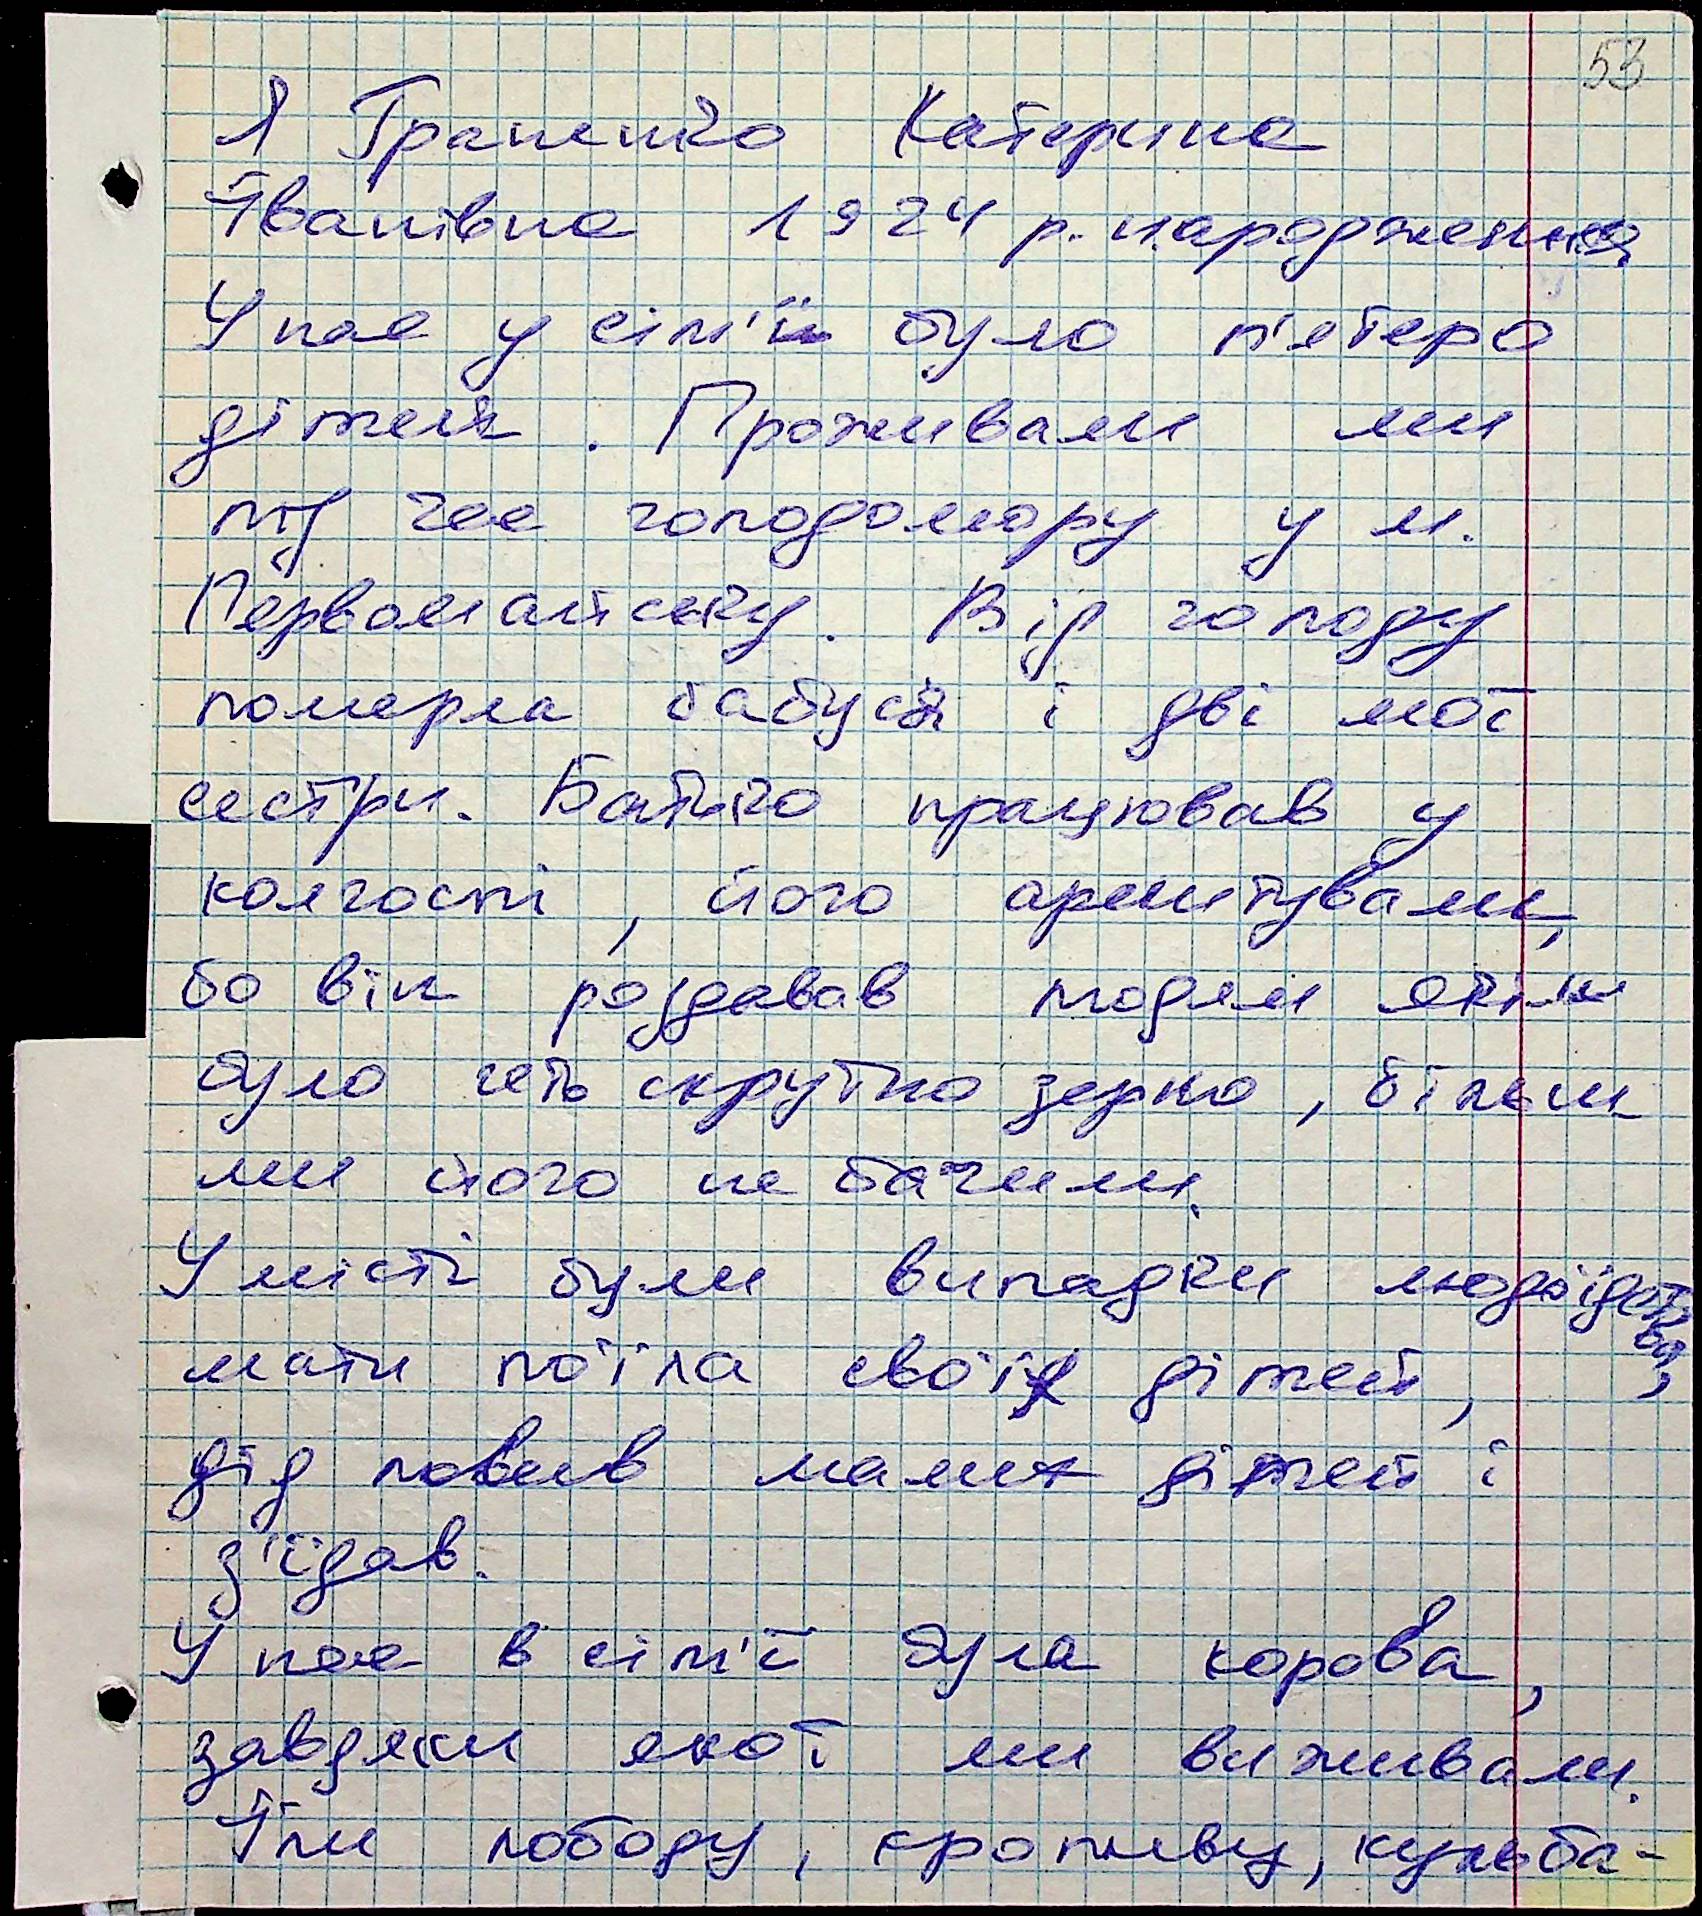 53
Я Граненко Катерина
Іванівна 1924 р. народження
У нас у сім'ї було п'ятеро
дітей. Проживали ми
під час голодомору у м.
Первомайську. Від голоду
померла бабуся і дві мої
сестри. Батько працював у
колгоспі, його арештували,
бо він роздавав людям яким
було геть скрутно зерно, більш
ми його не бачили.
У місті були випадки людоїдства,
мати поїла своїх дітей,
дід ловив малих дітей і
з'їдав.
У нас в сім'ї була корова,
завдяки якої ми виживали.
Їли лободу, кропиву, кульба-